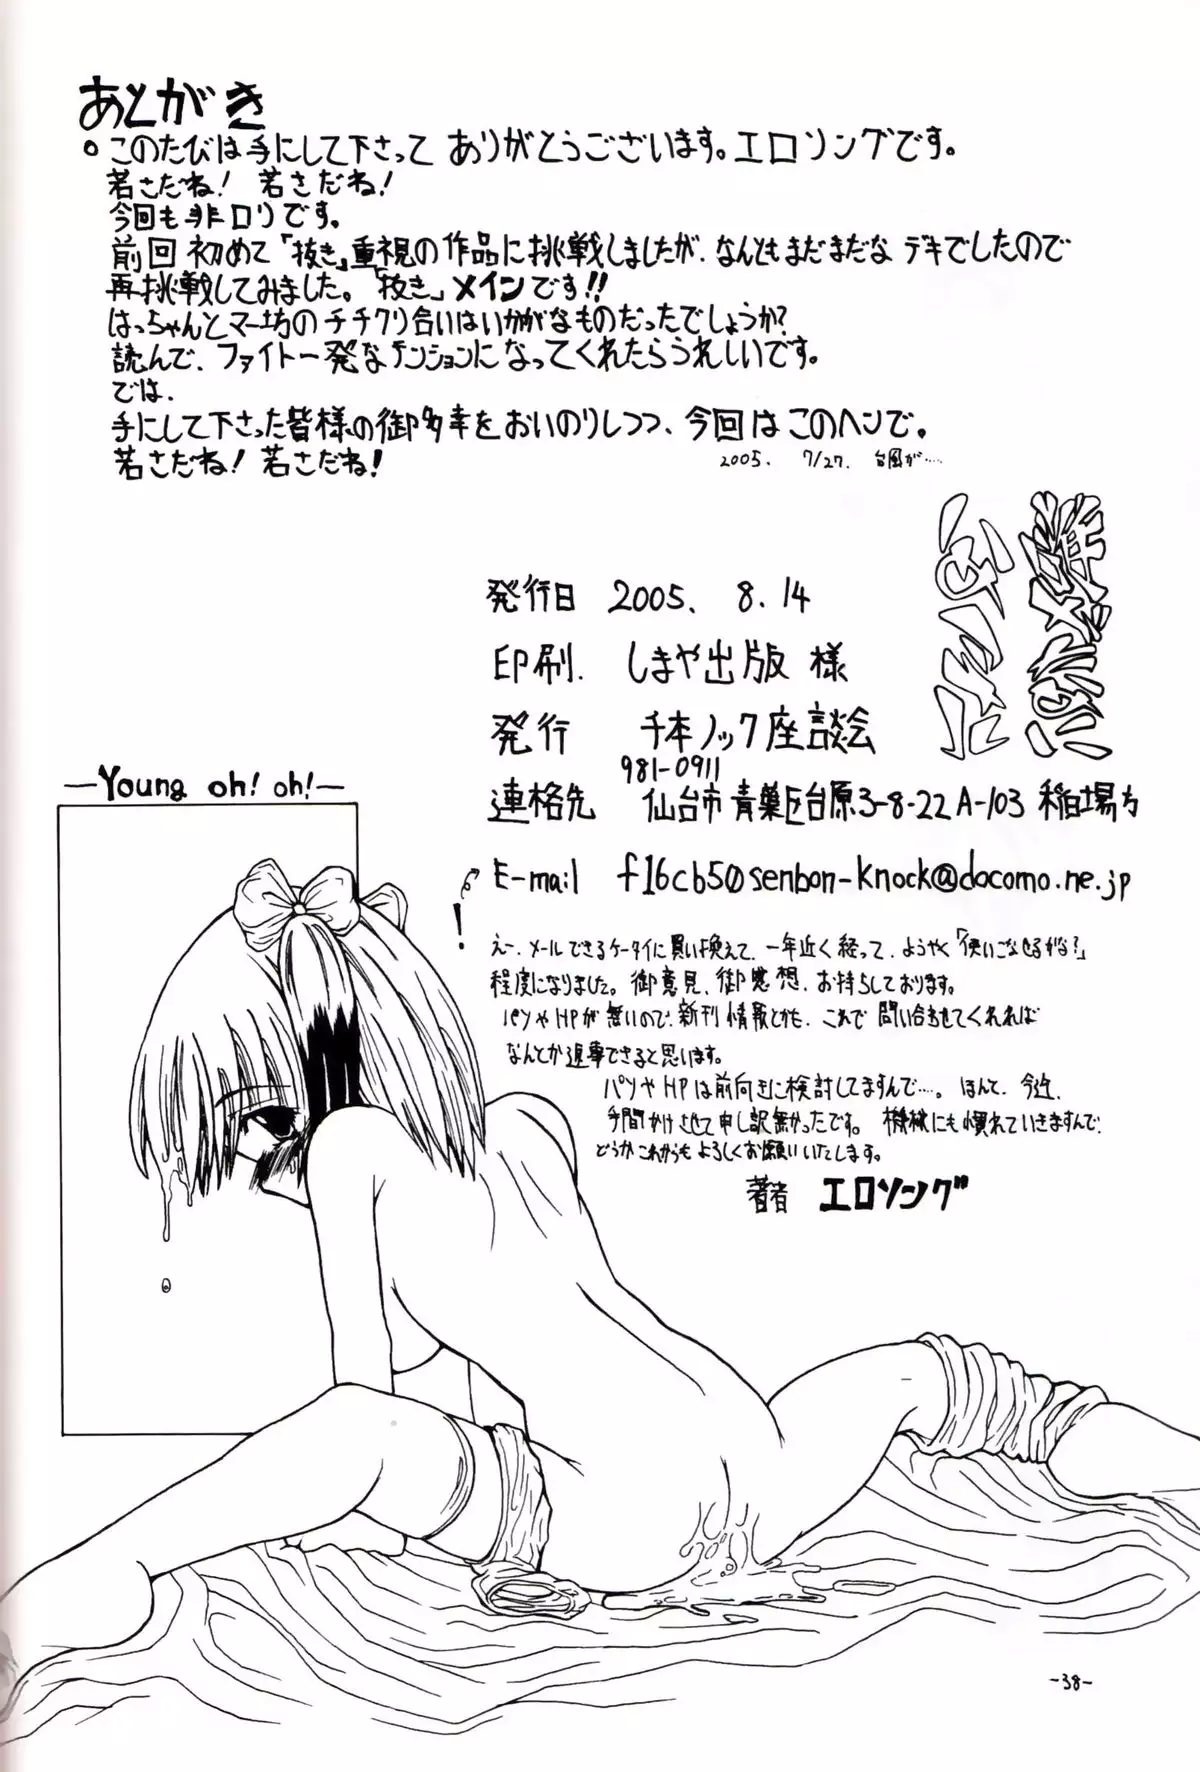 あとがき
。このたびは手にして下さって ありがとうございます。エロソングです。
若さだね! 若さだね!
今回も非ロリです。
前回初めて「抜き」重視の作品に挑戦しましたが、なんともまだまだな デキでしたので
再挑戦してみました。「抜き」メインです!!
はっちゃんとマー坊のチチクリ合いはいかがなものだったでしょうか?
読んで、ファイト一発なテンションになってくれたらうれしいです。
では、
手にして下さった皆様の御多幸をおいのりしつつ、今回はこのヘンで。
若さだね! 若さだね!
2005. 7/27. 台風が……
発行日 2005. 8.14
印刷. しまや出版 様
発行 千本ノック座談会
981-0911
連格先 仙台市青巣区台原3-8-22 A-103 稲場方
E-mail f16cb50senbon-knock@docomo.ne.jp
!
えー、メールできるケータイに買い換えて、一年近く経って、ようやく「使いこなせるがな?」
程度になりました。御意見、御感想、お待ちしております。
パソやHPが無いので、新刊情報とかも、これで問い合わせてくれれば
なんとか返事できると思います。
パソやHPは前向きに検討してますんで……。ほんと、今迄、
手間かけさせて申し訳無かったです。機械にも慣れていきますんで、
どうかこれからもよろしくお願いいたします。
著者 エロソング
—Young oh! oh!—
-38-